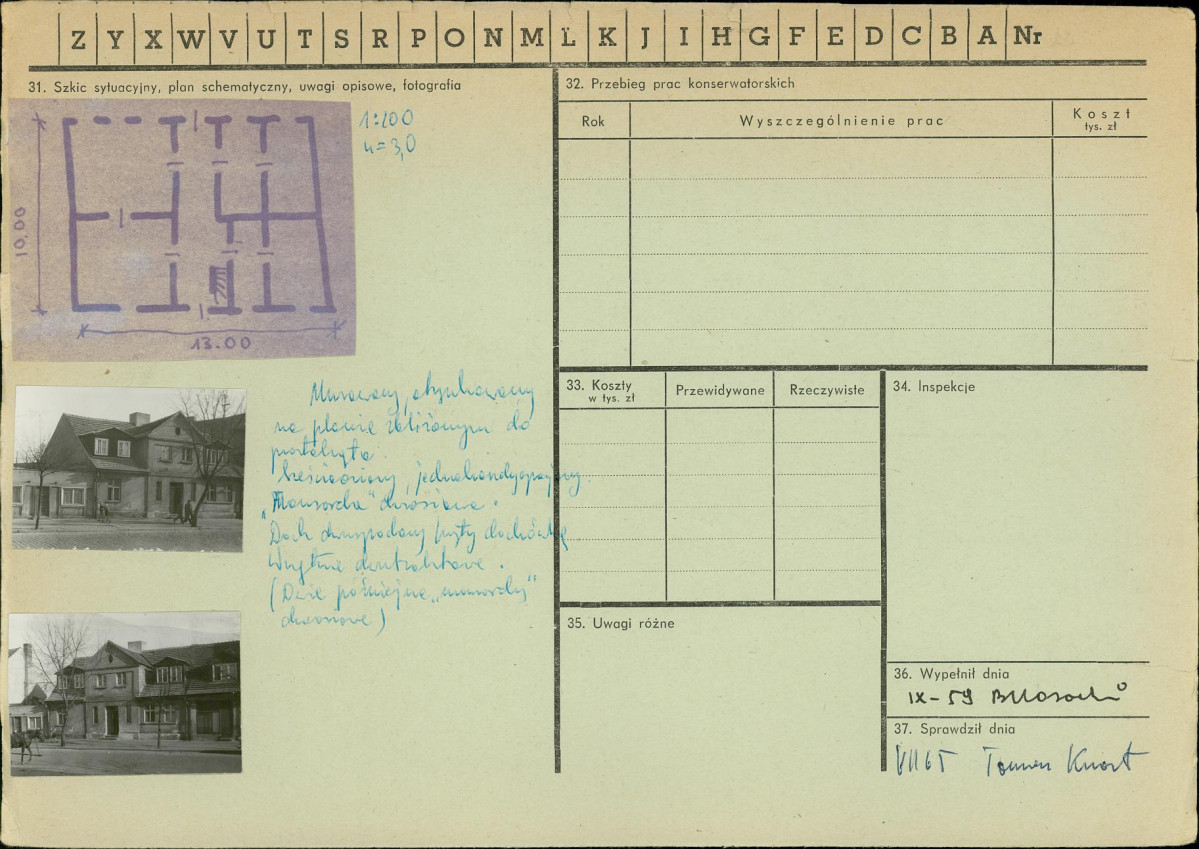 Z Y X W V U T S R P O N M Ł K J I H G F E D C B A Nr
31. Szkic sytuacyjny, plan schematyczny, uwagi opisowe, fotografia
1:200
h=3,0
10.00
13.00
Murowany, otynkowany
na planie zbliżonym do
prostokąta.
jednokondygnacyjny.
"Mansarda"
Dach dwuspadowy kryty dachówką
Wnętrze dwutraktowe.
(Dwie późniejsze "mansardy"
32. Przebieg prac konserwatorskich
Rok
Wyszczególnienie prac
Koszt
tys. zł
33. Koszty
w tys. zł
Przewidywane
Rzeczywiste
34. Inspekcje
35. Uwagi różne
36. Wypełnił dnia
IX-59
37. Sprawdził dnia
VII 65